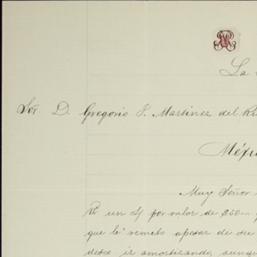 La
Sr. D. Gregorio J. Martinez del R
Méx
Muy Señor
un por valor de
que le remeto apesar de
debe ir amortizando aunq